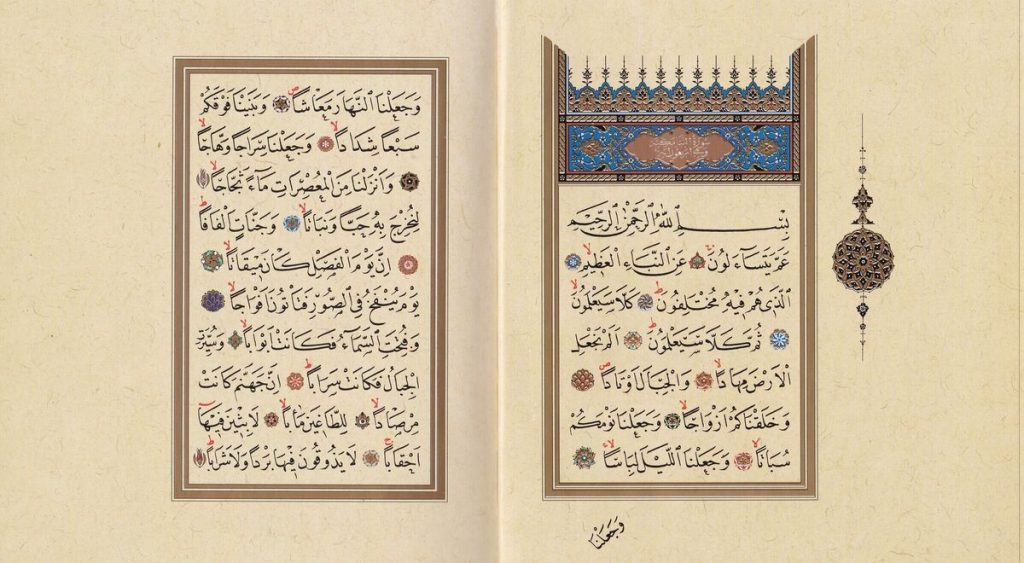 بِسْمِ اللّٰهِ الرَّحْمٰنِ الرَّحِيمِ
عَمَّ يَتَسَاءَلُونَ عَنِ النَّبَاِ الْعَظِيمِ
الَّذِى هُمْ فِيهِ مُخْتَلِفُونَ كَلَّا سَيَعْلَمُونَ
ثُمَّ كَلَّا سَيَعْلَمُونَ اَلَمْ نَجْعَلِ
الْاَرْضَ مِهَادًا وَالْجِبَالَ اَوْتَادًا
وَخَلَقْنَاكُمْ اَزْوَاجًا وَجَعَلْنَا نَوْمَكُمْ
سُبَاتًا وَجَعَلْنَا الَّيْلَ لِبَاسًا
وَجَعَلْنَا
وَجَعَلْنَا النَّهَارَ مَعَاشًا وَبَنَيْنَا فَوْقَكُمْ
سَبْعًا شِدَادًا وَجَعَلْنَا سِرَاجًا وَهَّاجًا
وَاَنْزَلْنَا مِنَ الْمُعْصِرَاتِ مَاءً ثَجَّاجًا
لِنُخْرِجَ بِهٖ حَبًّا وَنَبَاتًا وَجَنَّاتٍ اَلْفَافًا
اِنَّ يَوْمَ الْفَصْلِ كَانَ مِيقَاتًا
يَوْمَ يُنْفَخُ فِى الصُّورِ فَتَاْتُونَ اَفْوَاجًا
وَفُتِحَتِ السَّمَاءُ فَكَانَتْ اَبْوَابًا وَسُيِّرَتِ
الْجِبَالُ فَكَانَتْ سَرَابًا اِنَّ جَهَنَّمَ كَانَتْ
مِرْصَادًا لِلطَّاغِينَ مَاٰبًا لَابِثِينَ فِيهَا
اَحْقَابًا لَا يَذُوقُونَ فِيهَا بَرْدًا وَلَا شَرَابًا